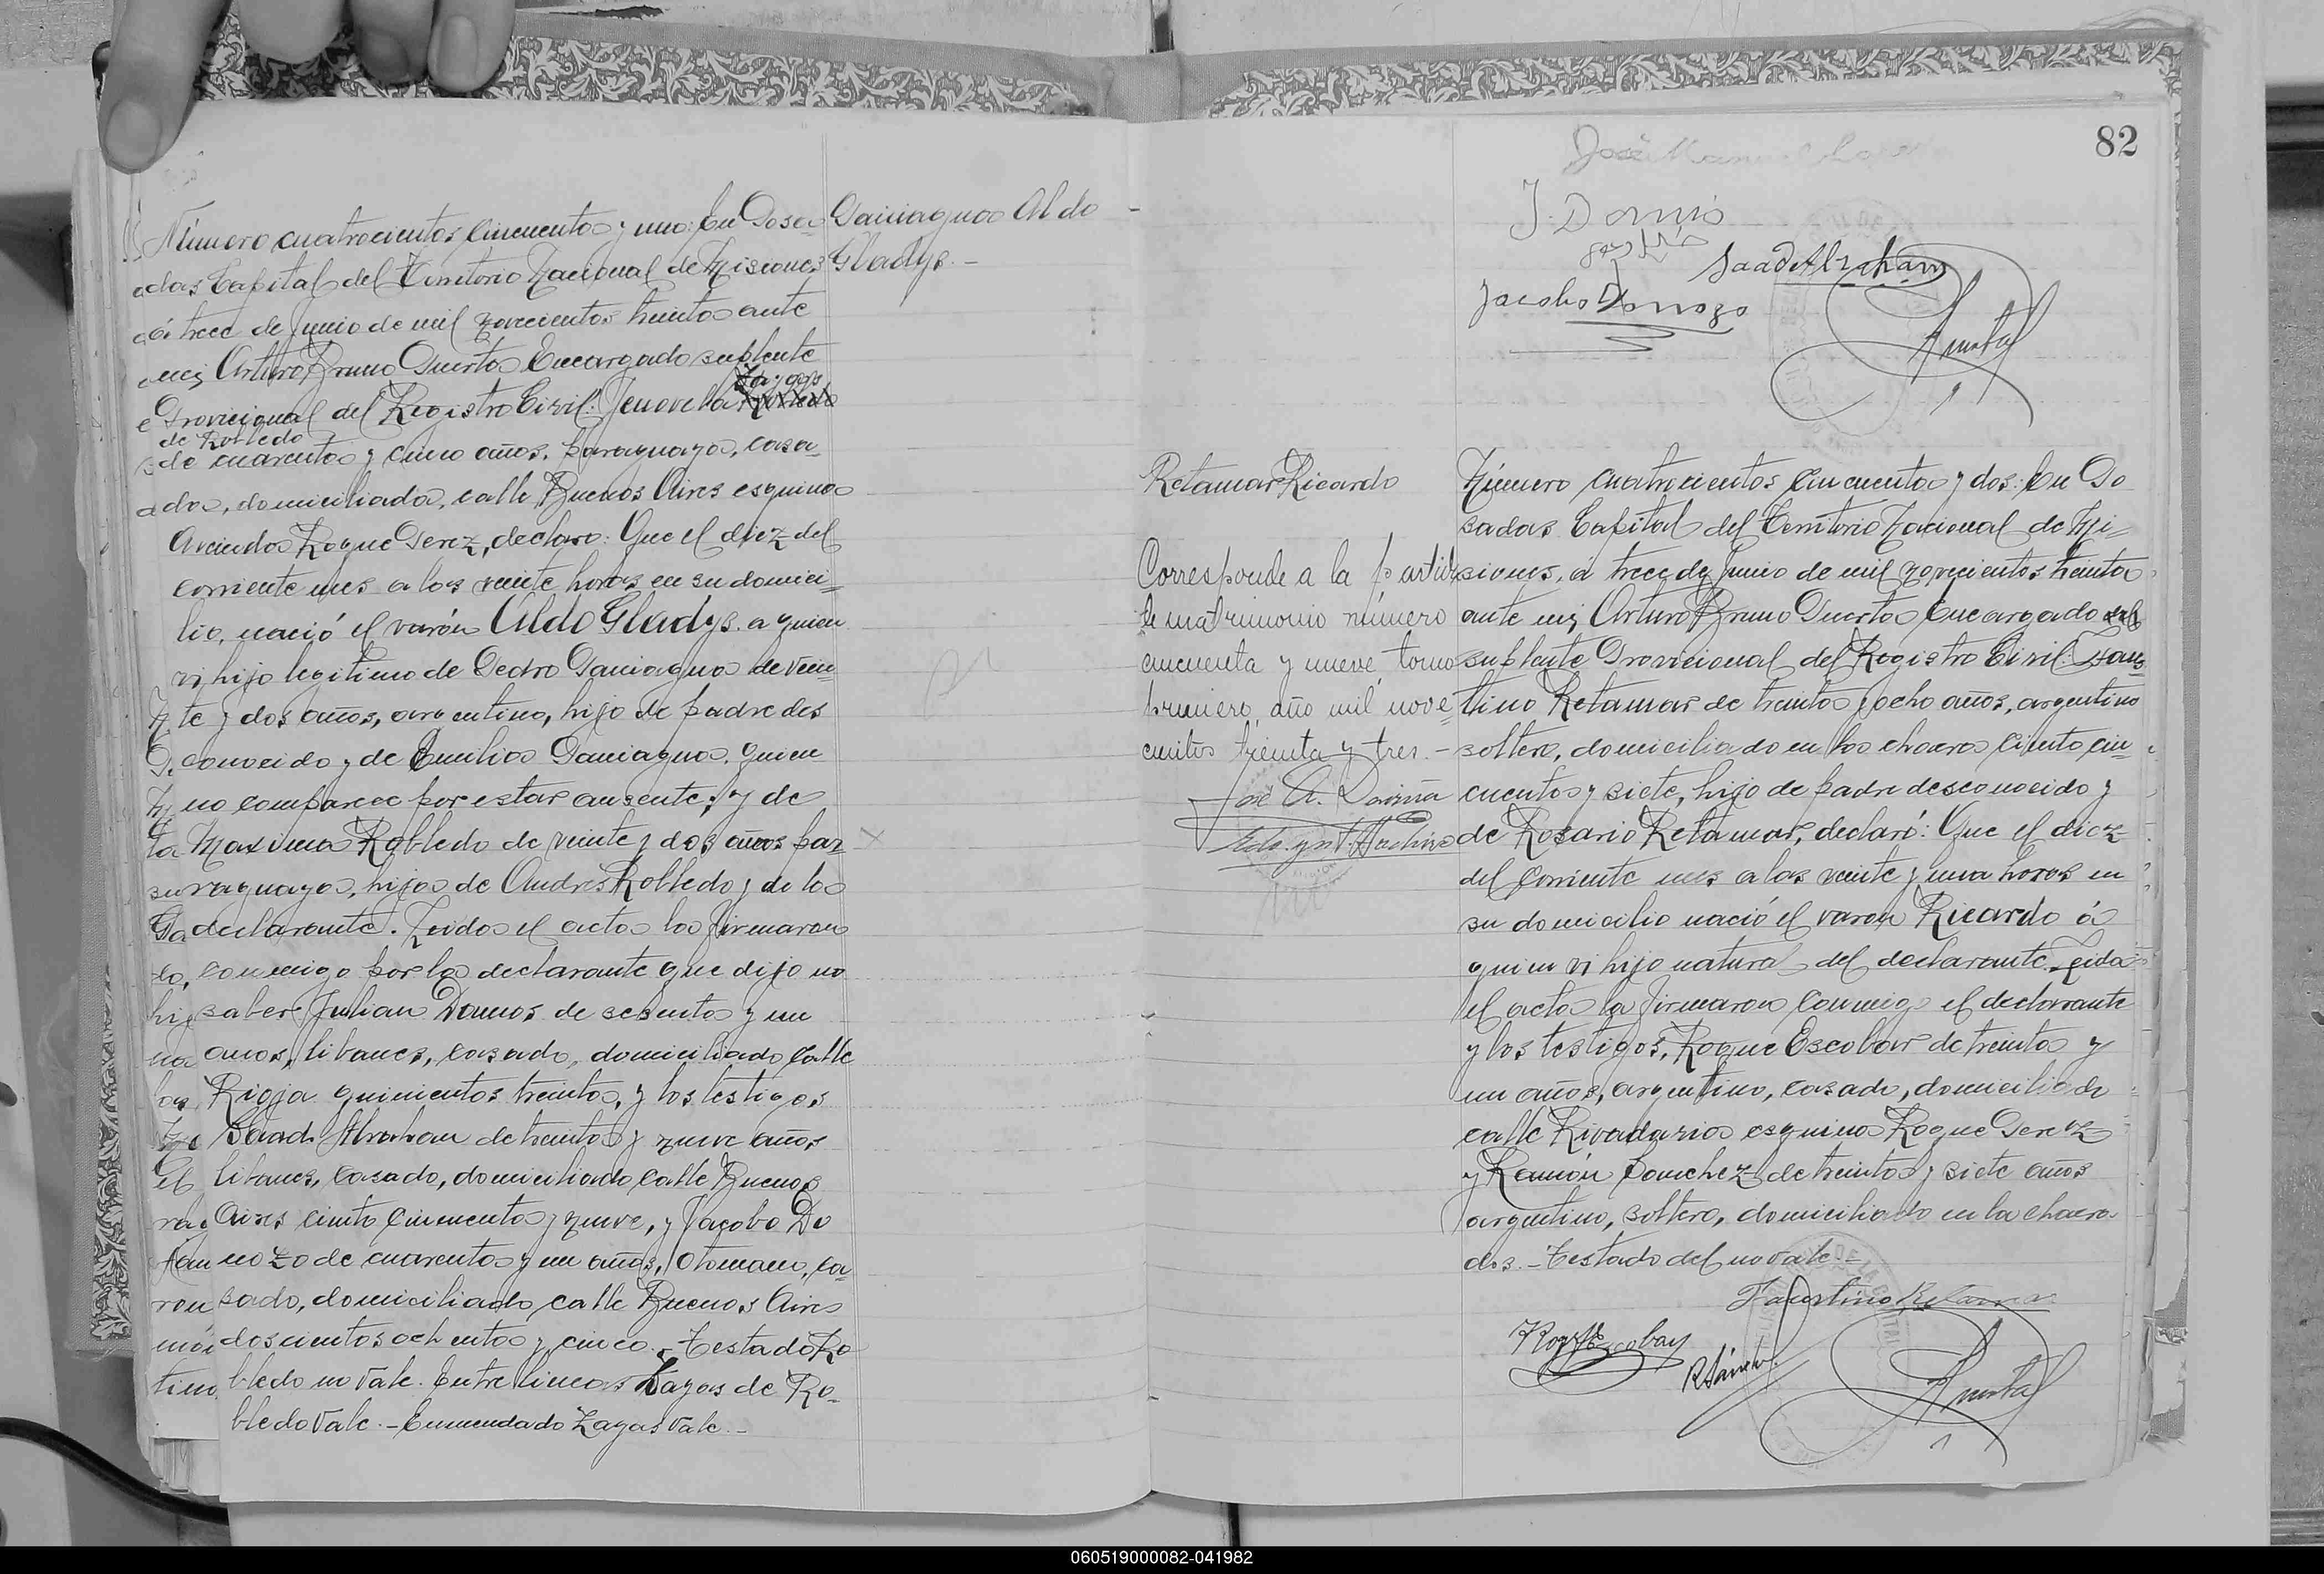 Número cuatrocientos cincuenta y uno: En Posa-
das Capital del Territorio Nacional de Misiones
á trece de Junio de mil novecientos treinta ante
mi, Arturo Bruno Puerta Encargado suplente
Zayas
Provicional del Registro Civil: Jenoveva Robledo
de Robledo
de cuarenta y cinco años, paraguaya, casa-
da, domiciliada, calle Buenos Aires esquina
Avenida Roque Perez, declaro: Que el diez del
corriente mes a las veinte horas en su domici-
lio, nació el varón Aldo Gladys a quien
vi, hijo legitimo de Pedro Paniagua de vein-
te y dos años, argentino, hijo de padre des
conocido y de Emilia Paniagua, quien
no comparece por estar ausente; y de
Maxima Robledo de veinte y dos años pa-
raguaya, hija de Andres Robledo y de la
declarante. Leida el acta la firmaron
conmigo por la declarante que dijo no
saber, Julian Domus de sesenta y un
anos, libanes, casado, domiciliado calle
Rioja quinientos treinta, y los testigos
Saad Abraham de treinta y nueve años
libanes, casado, domiciliado calle Buenos
Aires ciento cincuenta y nueve, y Jacobo Do
nozo de cuarenta y un años, Otomano, ca-
sado, domiciliado calle Buenos Aires
doscientos ochenta y cinco.- Testado Ro
bledo no vale. Entre lineas Zayas de Ro-
bledo Vale.- Enmendado Zayas Vale.-
Paniagua Aldo
Gladys.-
82
José Manuel
J. Domis
Saad Abraham
Jacobo Donozo
Retamar Ricardo
Corresponde a la partida
de matrimonio número
cincuenta y nueve, tomo
primero, año mil nove-
cientos treinta y tres.-
José A.
Número cuatrocientos cincuenta y dos: En Po
sadas Capital del Territorio Nacional de Mi-
siones, á trece de Junio de mil novecientos treinta
ante mi, Arturo Bruno Puerta Encargado del
suplente Provicional del Registro Civil: Faus
tino Retamar de treinta y ocho años, argentino
soltero, domiciliado en la chacra ciento cin-
cuenta y siete, hijo de padre desconocido y
de Rosario Retamar, declaró: Que el diez
del corriente mes a las veinte y una horas en
su domicilio nació el varon Ricardo á
quien vi hijo natural del declarante. Leida
el acta la firmaron conmigo el declarante
y los testigos, Roque Escobar de treinta y
un años, argentino, casado, domiciliado
calle Rivadavia esquina Roque Perez
y Ramón Sanchez de treinta y siete años
argentino, soltero, domiciliado en la chacra
dos.- Testado del no vale.-
Faustino Retamar
Roque Escobar
R Sánchez
060519000082-041982